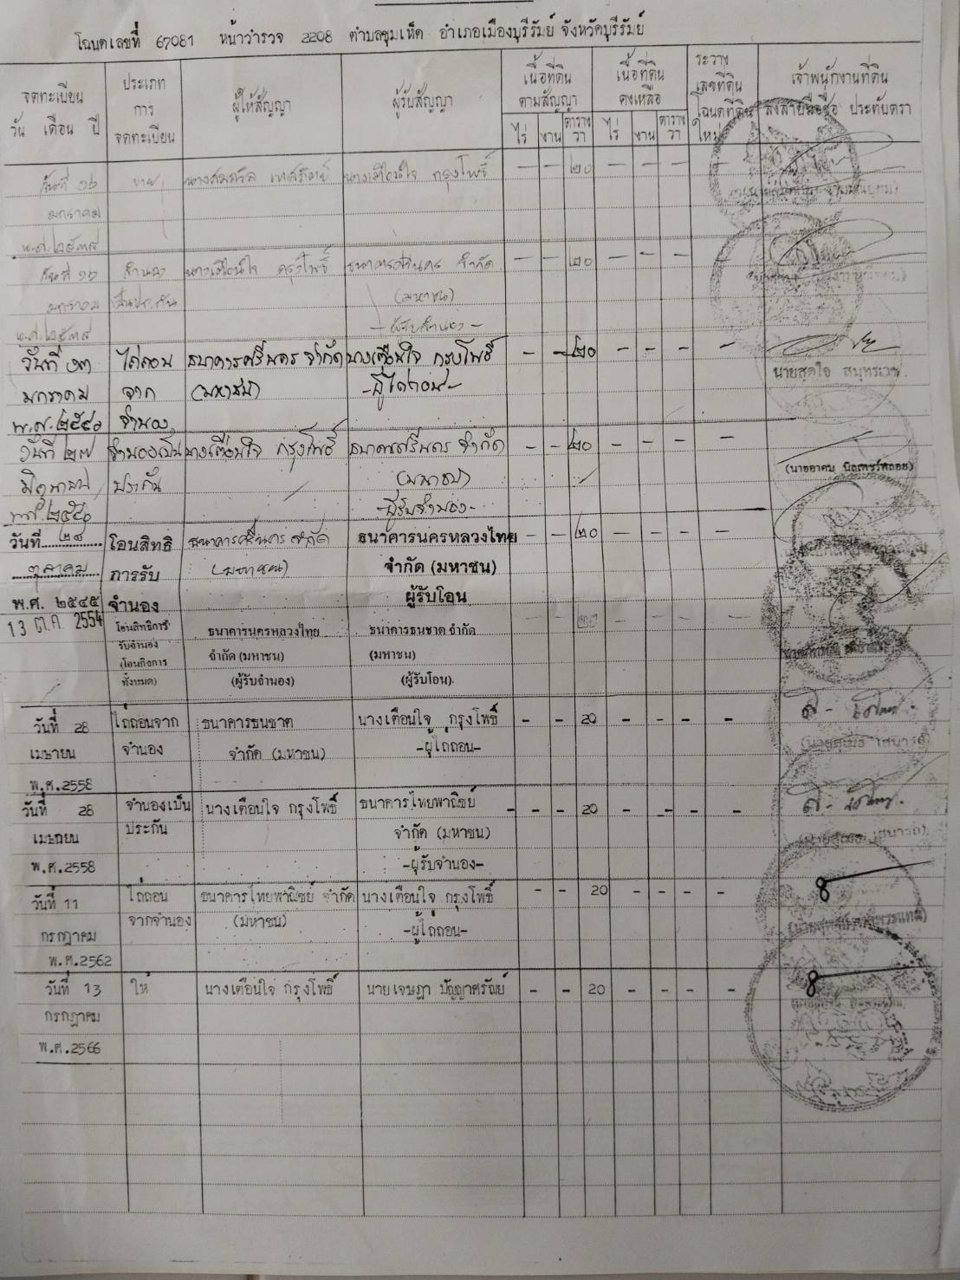 โฉนดเลขที่ 67081 หน้าสำรวจ 2208 ตำบลชุมเห็ด อำเภอเมืองบุรีรัมย์ จังหวัดบุรีรัมย์
จดทะเบียน
วัน เดือน ปี
ประเภท
การ
จดทะเบียน
ผู้ให้สัญญา
ผู้รับสัญญา
เนื้อที่ดิน
ตามสัญญา
ไร่ งาน ตาราง
วา
เนื้อที่ดิน
คงเหลือ
ไร่ งาน ตาราง
วา
ระวาง
เลขที่ดิน
โฉนดที่ดิน
ใหม่
เจ้าพนักงานที่ดิน
ลงลายมือชื่อ ประทับตรา
วันที่ ๑๖ ขาย นางเตือนใจ กรุงโพธิ์ – – ๒๐ – – – –
มกราคม
วันที่ ๑๖ นางเตือนใจ กรุงโพธิ์ ธนาคารศรีนคร จำกัด – – ๒๐ – – – –
มกราคม (มหาชน)
- ผู้รับจำนอง -
วันที่ ๑๓ ไถ่ถอน ธนาคารศรีนคร จำกัด นางเตือนใจ กรุงโพธิ์ – – ๒๐ – – – –
มกราคม จาก (มหาชน) -ผู้ไถ่ถอน- นายสุดใจ
พ.ศ.๒๕๔๐ จำนอง
วันที่ ๒๗ จำนองเป็น นางเตือนใจ กรุงโพธิ์ ธนาคารศรีนคร จำกัด – – ๒๐ – – – –
มิถุนายน ประกัน (มหาชน)
พ.ศ.๒๕๔๐ -ผู้รับจำนอง-
วันที่ ๒๘ โอนสิทธิ ธนาคารศรีนคร จำกัด ธนาคารนครหลวงไทย – – ๒๐ – – – –
ตุลาคม การรับ (มหาชน) จำกัด (มหาชน)
พ.ศ. ๒๕๔๕ จำนอง ผู้รับโอน
13 ต.ค. 2554 โอนสิทธิการ ธนาคารนครหลวงไทย ธนาคารธนชาต จำกัด – – 20 – – – –
รับจำนอง จำกัด (มหาชน) (มหาชน)
(โอนกิจการ
ทั้งหมด) (ผู้รับจำนอง) (ผู้รับโอน)
วันที่ 28 ไถ่ถอนจาก ธนาคารธนชาต นางเตือนใจ กรุงโพธิ์ - - 20 - - - -
เมษายน จำนอง จำกัด (มหาชน) -ผู้ไถ่ถอน-
พ.ศ.2558
วันที่ 28 จำนองเป็น นางเตือนใจ กรุงโพธิ์ ธนาคารไทยพาณิชย์ - - 20 - - - -
เมษายน ประกัน จำกัด (มหาชน)
พ.ศ.2558 -ผู้รับจำนอง-
วันที่ 11 ไถ่ถอน ธนาคารไทยพาณิชย์ จำกัด นางเตือนใจ กรุงโพธิ์ - - 20 - - - -
กรกฎาคม จากจำนอง (มหาชน) -ผู้ไถ่ถอน-
พ.ศ.2562
วันที่ 13 ให้ นางเตือนใจ กรุงโพธิ์ นายเจษฎา ปัญญาศรัณย์ - - 20 - - - -
กรกฎาคม
พ.ศ.2566